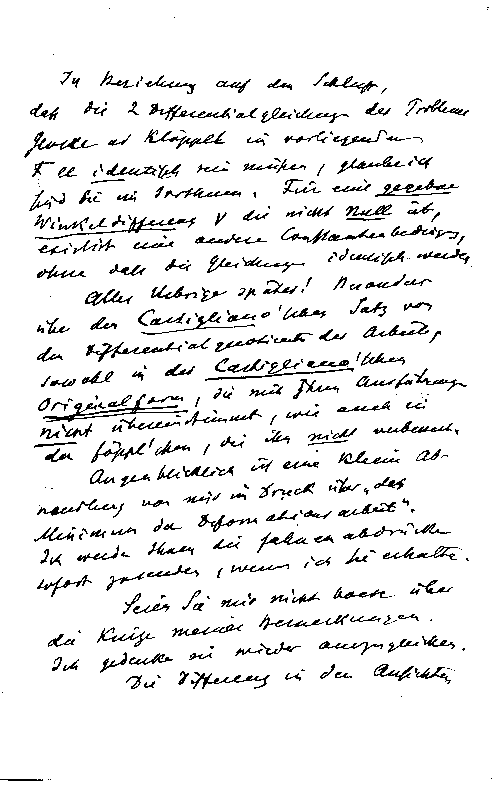 In Beziehung auf den Schluß,
daß die 2 Differentialgleichungen des Problems
Gercke ad Klöppelt im vorliegenden
Fall identisch sein müßen, glaube ich
sind Sie im Irrthum. Für eine gegebene
Winkeldifferenz V die nicht Null ist,
existirt eine andere Constantenbedingg,
ohne daß die Gleichungen identisch werden
Alles Uebrige später! Besonders
über den Castigliano'schen Satz von
den Differentialquotienten der Arbeit,
sowohl in der Castigliano'schen
Originalform, die mit Ihren Ausführungen
nicht übereinstimmt, wie auch in
der Föppl'schen, die ihn nicht verbessert.
Augenblicklich ist eine kleine Ab-
handlung von mir in Druck über "das
Minimum der Deformationsarbeit".
Ich werde Ihnen die Fahnenabdrücke
sofort zusenden, wenn ich sie erhalte.
Seien Sie mir nicht boese über
die Kürze meiner Bemerkungen.
Ich gedenke sie wieder auszugleichen.
Die Differenz in den Ansichten